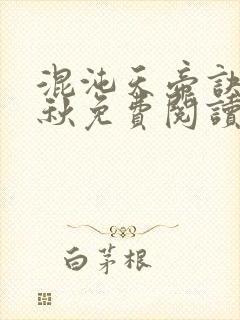 混沌天帝訣
秋免費閱讀
白茅根